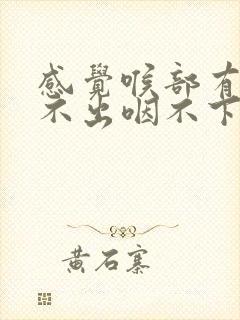 感覺喉部有
不出咽不下
黃石寨